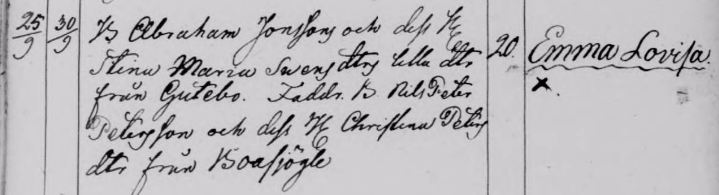 25/9 30/9 B Abraham Jonssons och dess H 20. Emma Lovisa.
Stina Maria Svensdtrs lilla dtr x
från Gutebo. Faddr. B Nils Peter
Petersson och dess H Christina Peters
dtr från Boasjögle